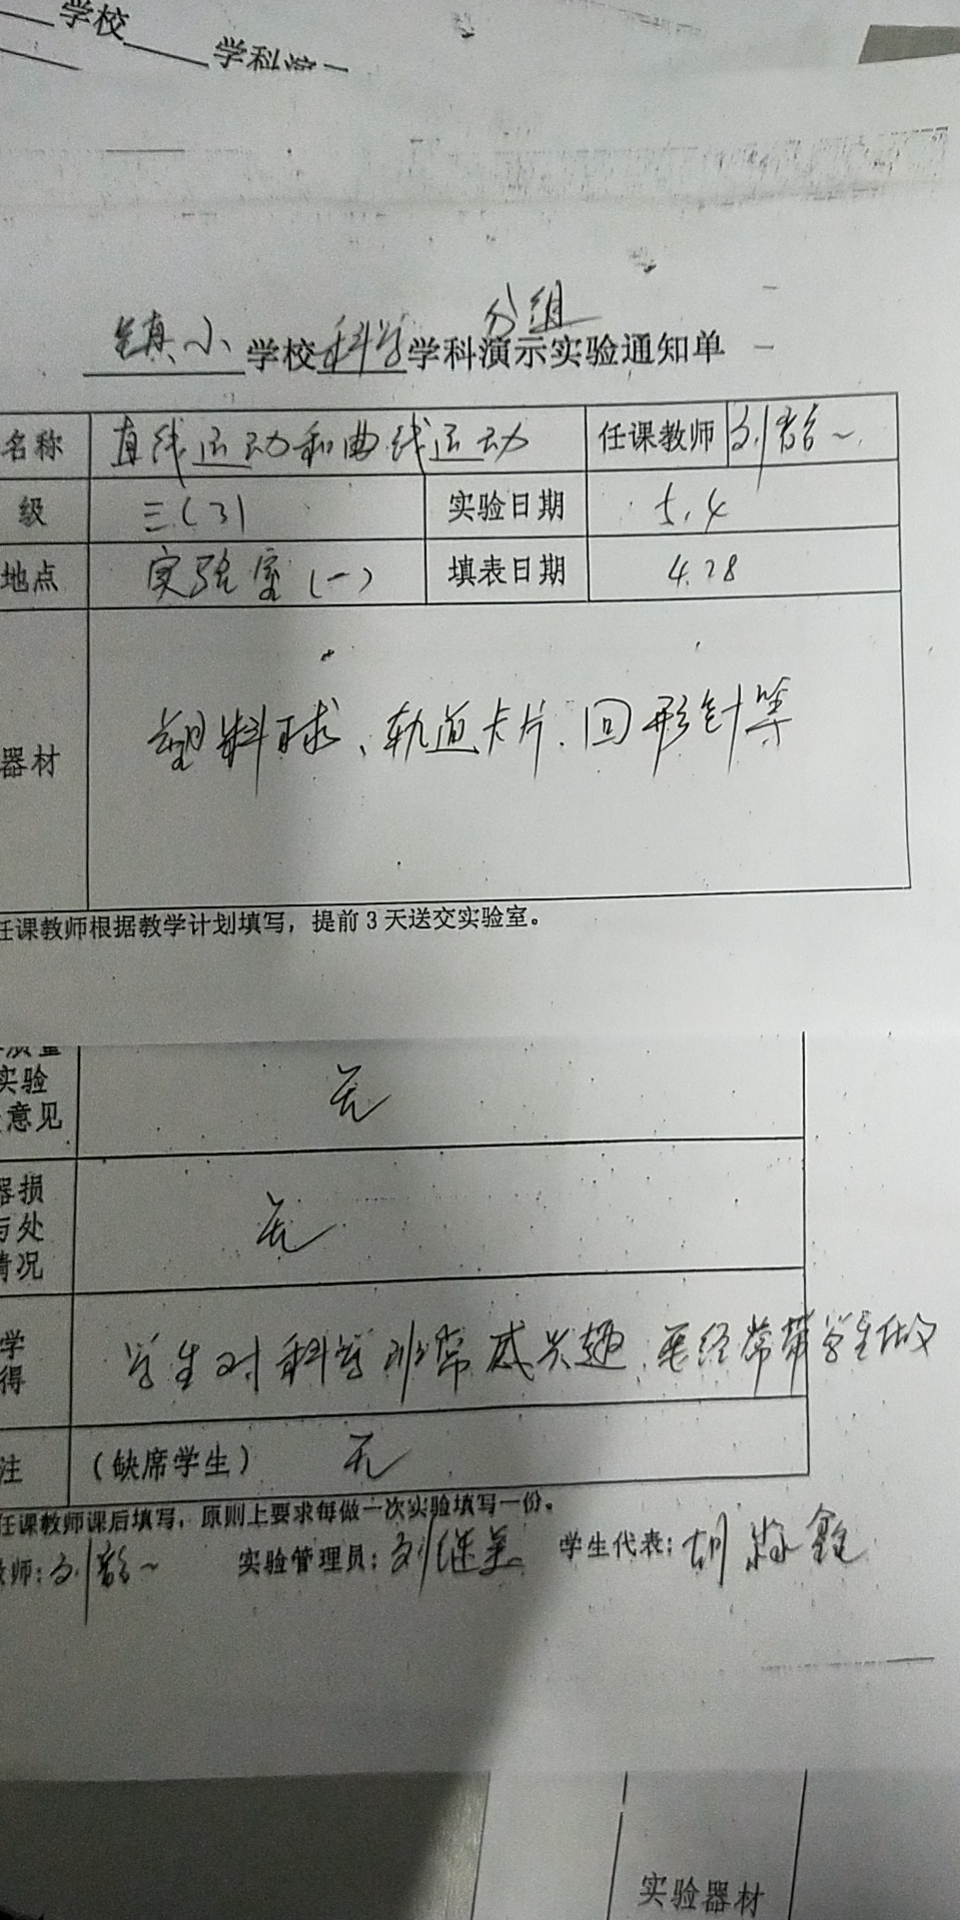 学校 学科演
分组
镇小学校科学学科演示实验通知单
名称 直线运动和曲线运动 任课教师 刘
级 三(3) 实验日期 5.4
地点 实验室(一) 填表日期 4.28
器材 塑料球、轨道卡片、回形针等
任课教师根据教学计划填写，提前3天送交实验室。
质量
实验
意见
无
器损
与处
情况
无
学
得
学生对科学非常感兴趣,要经常带学生做
注 (缺席学生) 无
任课教师课后填写，原则上要求每做一次实验填写一份。
教师:刘 实验管理员:刘继 学生代表:胡
实验器材